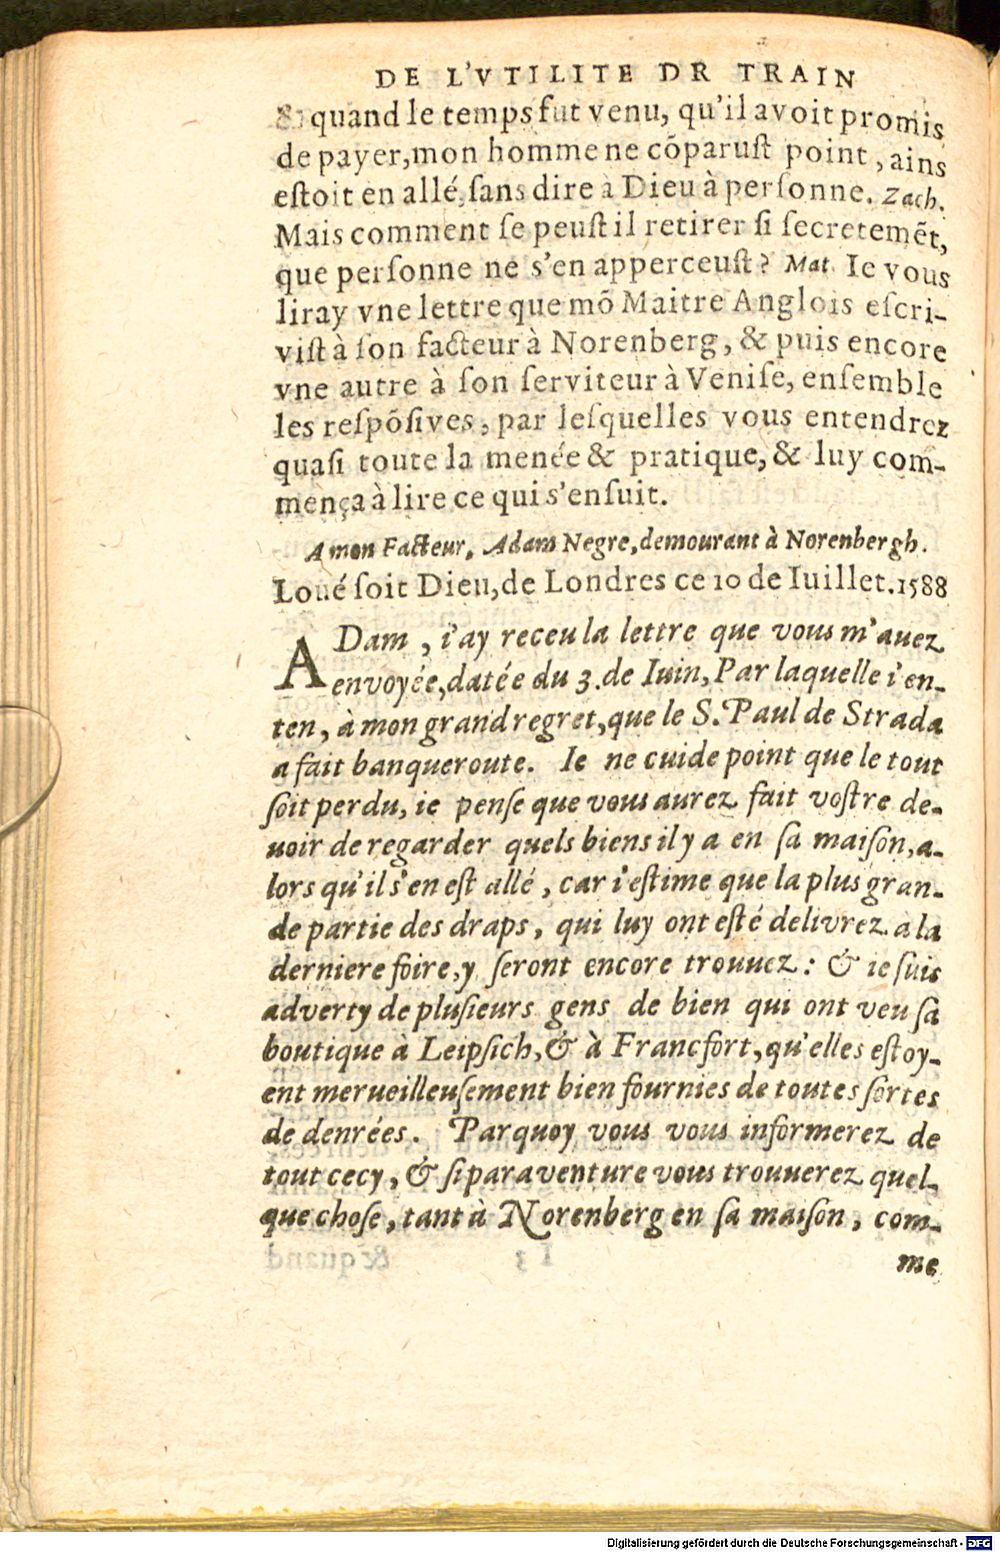 DE L'VTILITE DR TRAIN
& quand le temps fut venu, qu'il avoit promis
de payer, mon homme ne cõparuſt point, ains
eſtoit en allé, ſans dire à Dieu à perſonne. Zach.
Mais comment ſe peuſt il retirer ſi ſecretemẽt,
que perſonne ne s'en apperceuſt? Mat. Ie vous
liray vne lettre que mõ Maitre Anglois eſcri-
viſt à ſon facteur à Norenberg, & puis encore
vne autre à ſon ſerviteur à Veniſe, enſemble
les reſpõſives, par leſquelles vous entendrez
quaſi toute la menée & pratique, & luy com-
mença à lire ce qui s'enſuit.
A mon Facteur, Adam Negre, demourant à Norenbergh.
Loué ſoit Dieu, de Londres ce 10 de Iuillet. 1588
ADam, i'ay receu la lettre que vous m'auez
envoyée, datée du 3. de Iuin, Par laquelle i'en-
ten, à mon grand regret, que le S. Paul de Strada
a fait banqueroute. Ie ne cuide point que le tout
ſoit perdu, ie penſe que vous aurez fait voſtre de-
uoir de regarder quels biens il y a en ſa maiſon, a-
lors qu'il s'en eſt allé, car i'eſtime que la plus gran-
de partie des draps, qui luy ont eſté delivrez a la
derniere foire, y ſeront encore trouuez: & ie ſuis
adverty de pluſieurs gens de bien qui ont veu ſa
boutique à Leipſich, & à Francfort, qu'elles eſtoy-
ent merueilleuſement bien fournies de toutes ſortes
de denrées. Parquoy vous vous informerez de
tout cecy, & ſi par aventure vous trouuerez quel-
que choſe, tant à Norenberg en ſa maiſon, com-
me
Digitalisierung gefördert durch die Deutsche Forschungsgemeinschaft - DFG